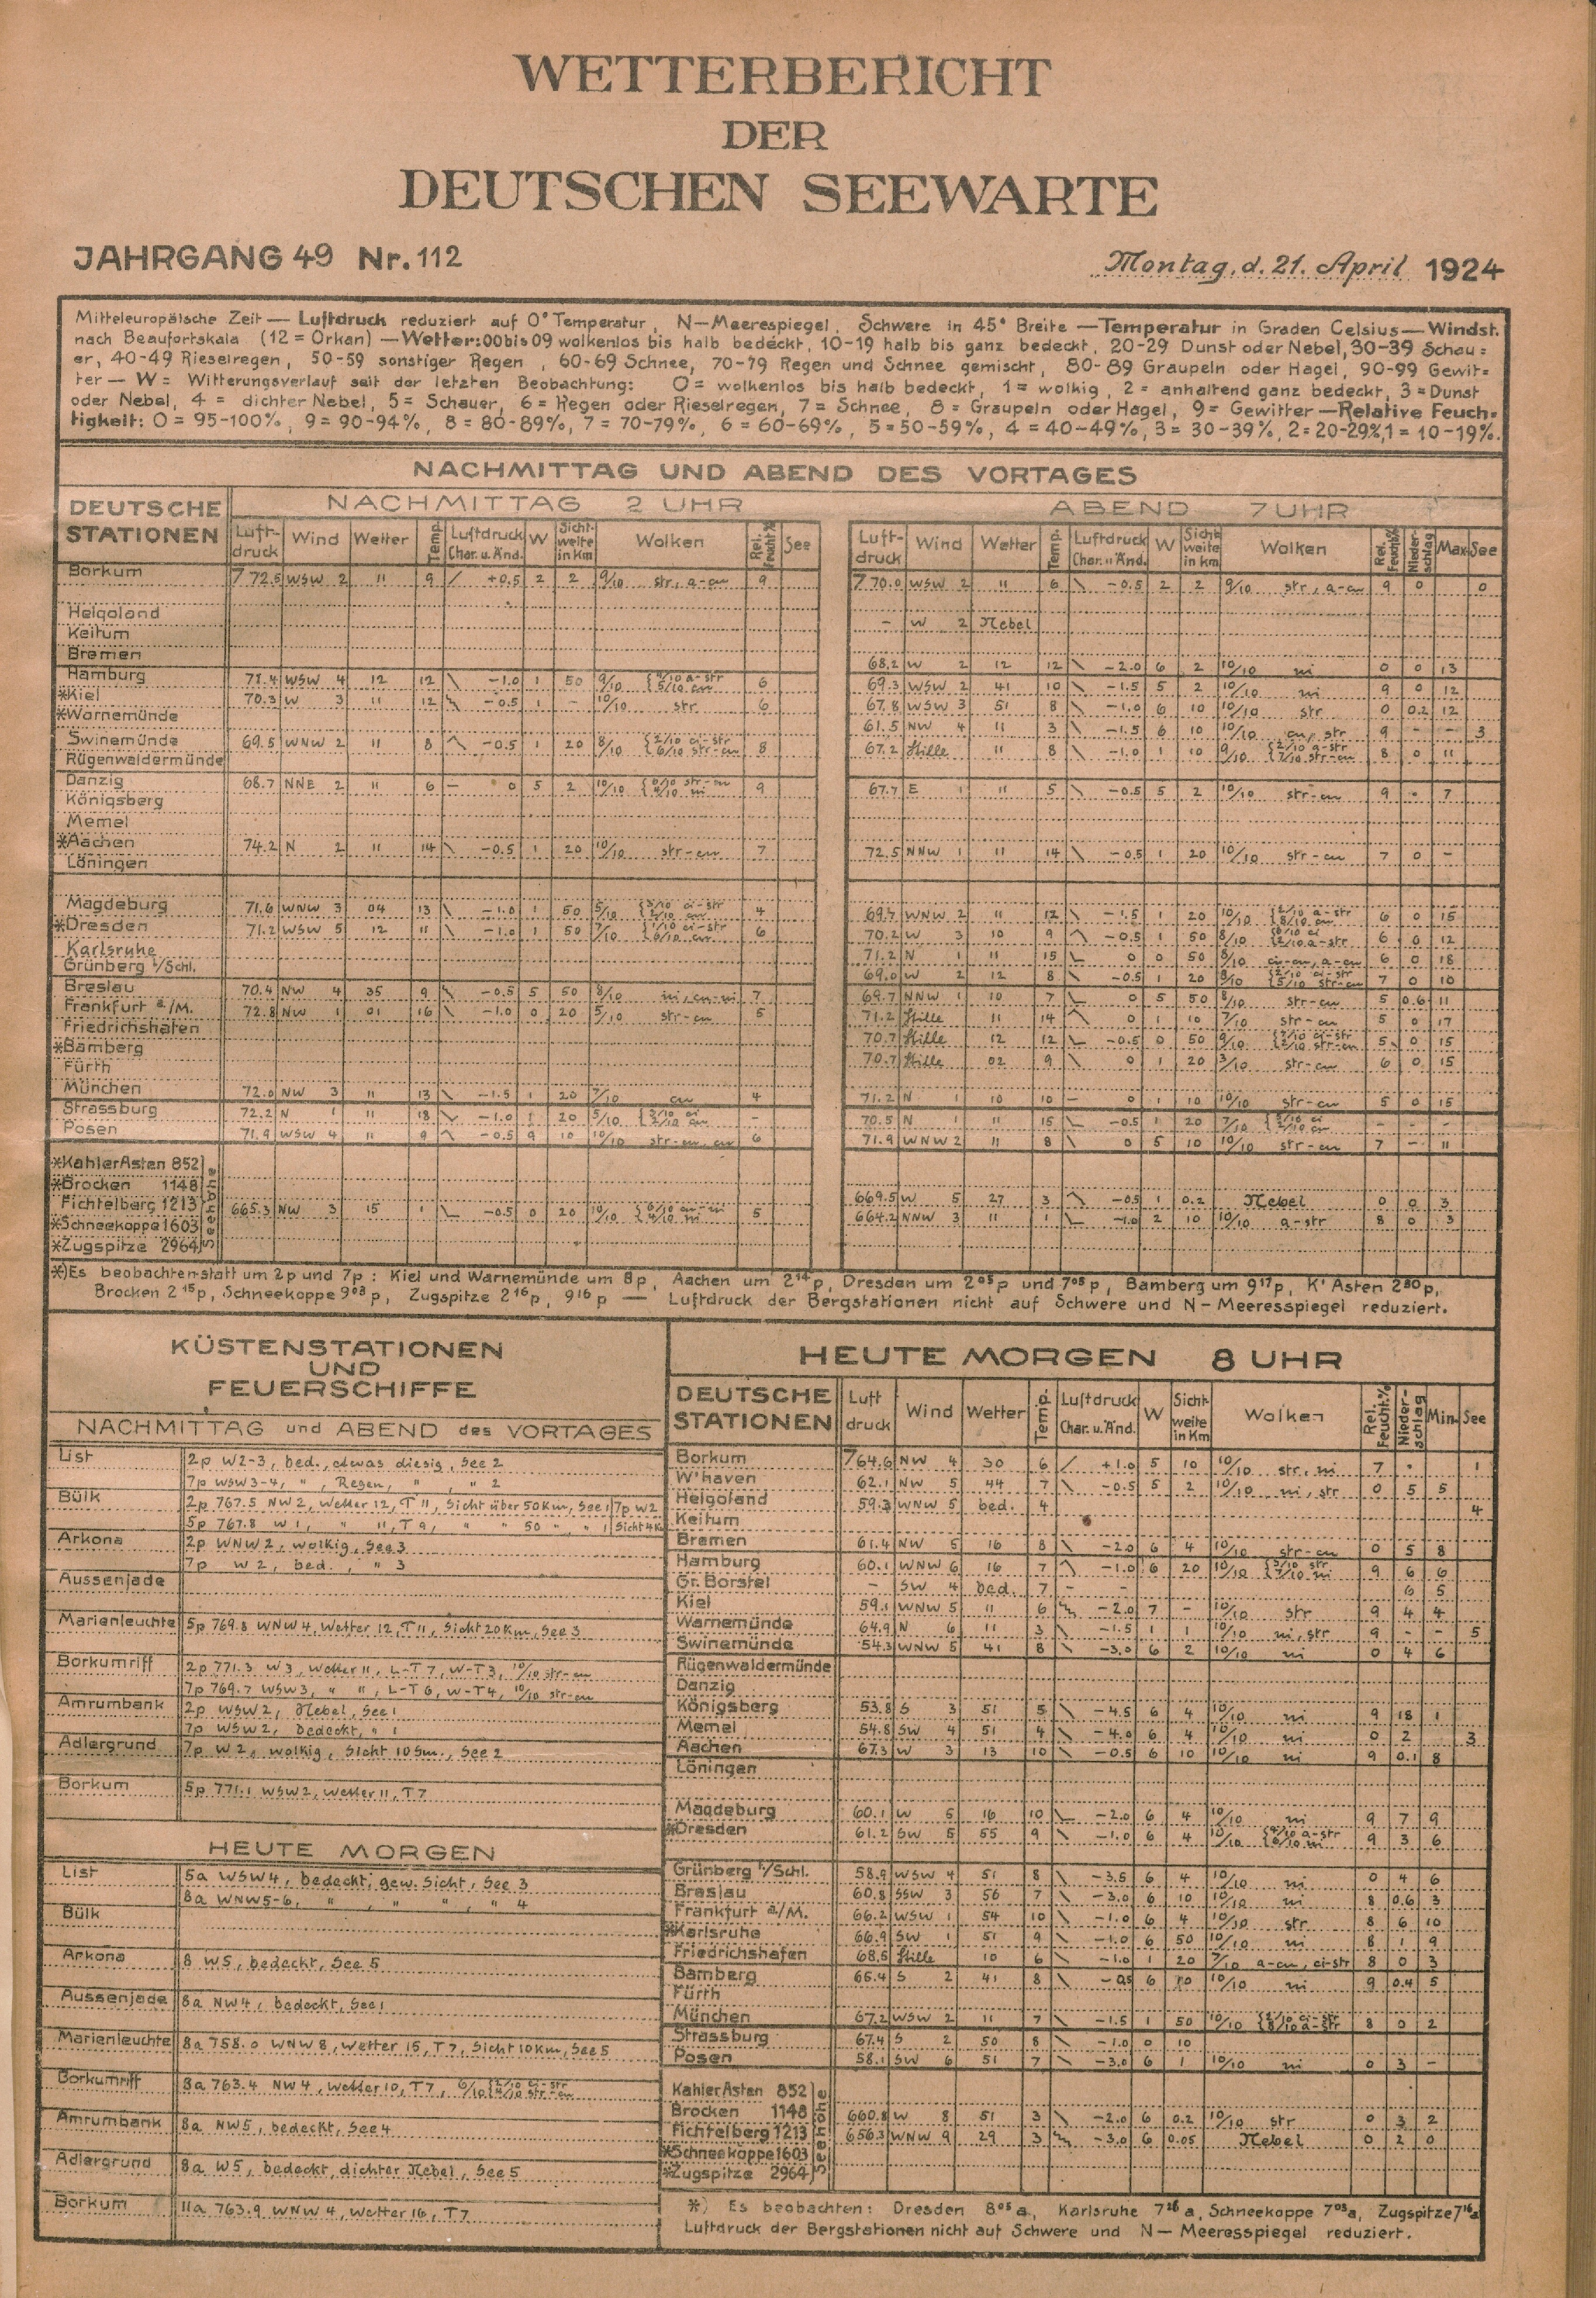 WETTERBERICHT
DER
DEUTSCHEN SEEWARTE
JAHRGANG 49 Nr. 112
Montag, d. 21. April 1924
Mitteleuropäische Zeit — Luftdruck reduziert auf 0° Temperatur, N—Meerespiegel, Schwere in 45° Breite — Temperatur in Graden Celsius — Windst.
nach Beaufortskala (12 = Orkan) — Wetter: 00 bis 09 wolkenlos bis halb bedeckt, 10-19 halb bis ganz bedeckt, 20-29 Dunst oder Nebel, 30-39 Schau=
er, 40-49 Rieselregen, 50-59 sonstiger Regen, 60-69 Schnee, 70-79 Regen und Schnee gemischt, 80-89 Graupeln oder Hagel, 90-99 Gewit=
ter — W = Witterungsverlauf seit der letzten Beobachtung: 0 = wolkenlos bis halb bedeckt, 1 = wolkig, 2 = anhaltend ganz bedeckt, 3 = Dunst
oder Nebel, 4 = dichter Nebel, 5 = Schauer, 6 = Regen oder Rieselregen, 7 = Schnee, 8 = Graupeln oder Hagel, 9 = Gewitter — Relative Feuch=
tigkeit: 0 = 95-100%, 9 = 90-94%, 8 = 80-89%, 7 = 70-79%, 6 = 60-69%, 5 = 50-59%, 4 = 40-49%, 3 = 30-39%, 2 = 20-29%, 1 = 10-19%.
NACHMITTAG UND ABEND DES VORTAGES
DEUTSCHE STATIONEN
NACHMITTAG 2 UHR
ABEND 7 UHR
Luft-druck Wind Wetter Temp. Luftdruck Char. u. Änd. W Sicht-weite in Km Wolken Rel. Feucht.% See
Luft-druck Wind Wetter Temp. Luftdruck Char. u. Änd. W Sicht-weite in Km Wolken Rel. Feucht.% Nieder-schlag Max. See
Borkum 772.5 WSW 2 11 9 +0.5 2 2 9/10 str, a-cu 9 770.0 WSW 2 11 6 -0.5 2 2 9/10 str, a-cu 9 0 0
Helgoland - W 2 Nebel
Keitum
Bremen 68.2 W 2 12 12 -2.0 6 2 10/10 ni 0 0 13
Hamburg 71.4 WSW 4 12 12 -1.0 1 50 9/10 6 69.3 WSW 2 41 10 -1.5 5 2 10/10 ni 9 0 12
*Kiel 70.3 W 3 11 12 -0.5 1 - 10/10 str 6 67.8 WSW 3 51 8 -1.0 6 10 10/10 str 0 0.2 12
*Warnemünde 61.5 NW 4 11 3 -1.5 6 10 10/10 cu, str 9 - - 3
Swinemünde 69.5 WNW 2 11 8 -0.5 1 20 8/10 {2/10 ci-str 6/10 str-cu 8 67.2 Stille 11 8 -1.0 1 10 9/10 {2/10 a-str 7/10 str-cu 8 0 11
Rügenwaldermünde
Danzig 68.7 NNE 2 11 6 — 0 5 2 10/10 9 67.7 E 1 11 5 -0.5 5 2 10/10 str-cu 9 . 7
Königsberg
Memel
*Aachen 74.2 N 2 11 14 -0.5 1 20 10/10 str-cu 7 72.5 NNW 1 11 14 -0.5 1 20 10/10 str-cu 7 0 -
Löningen
Magdeburg 71.6 WNW 3 04 13 -1.0 1 50 5/10 {3/10 ci-str 2/10 cu 4 69.7 WNW 2 11 12 -1.5 1 20 10/10 {2/10 a-str 8/10 cu 6 0 15
*Dresden 71.2 WSW 5 12 11 -1.0 1 50 7/10 {1/10 ci-str 6/10 cu 6 70.2 W 3 10 9 -0.5 1 50 8/10 6 0 12
Karlsruhe 71.2 N 1 11 15 0 0 50 8/10 ci-cu, a-cu 6 0 18
Grünberg i/Schl. 69.0 W 2 12 8 -0.5 1 20 8/10 7 0 10
Breslau 70.4 NW 4 35 9 -0.5 5 50 8/10 ni, cu-ni 7 69.7 NNW 1 10 7 0 5 50 8/10 str-cu 5 0.6 11
Frankfurt a/M. 72.8 NW 1 01 16 -1.0 0 20 5/10 str-cu 5 71.2 Stille 11 14 0 1 10 7/10 str-cu 5 0 17
Friedrichshafen 70.7 Stille 12 12 -0.5 0 50 9/10 5 0 15
*Bamberg 70.7 Stille 02 9 0 1 20 3/10 str-cu 6 0 15
Fürth
München 72.0 NW 3 11 13 -1.5 1 20 7/10 cu 4 71.2 N 1 10 10 — 0 1 10 10/10 str-cu 5 0 15
Strassburg 72.2 N 1 11 18 -1.0 1 20 5/10 {3/10 ci 2/10 cu - 70.5 N 1 11 15 -0.5 1 20 7/10 - - -
Posen 71.9 WSW 4 11 9 -0.5 9 10 10/10 str-cu, cu 6 71.9 WNW 2 11 8 0 5 10 10/10 str-cu 7 - 11
*Kahler Asten 852
*Brocken 1148 669.5 W 5 27 3 -0.5 1 0.2 Nebel 0 0 3
Fichtelberg 1213 665.3 NW 3 15 1 -0.5 0 20 10/10 {6/10 cu-ni 4/10 ni 5 664.2 NNW 3 11 1 -1.0 2 10 10/10 a-str 8 0 3
*Schneekoppe 1603
*Zugspitze 2964
Seehöhe
*) Es beobachten statt um 2p und 7p: Kiel und Warnemünde um 8p, Aachen um 2 14 p, Dresden um 2 05 p und 7 05 p, Bamberg um 9 17 p, K' Asten 2 30 p,
Brocken 2 15 p, Schneekoppe 9 03 p, Zugspitze 2 16 p, 9 16 p — Luftdruck der Bergstationen nicht auf Schwere und N—Meeresspiegel reduziert.
KÜSTENSTATIONEN
UND
FEUERSCHIFFE
NACHMITTAG und ABEND des VORTAGES
List 2p W2-3, bed., etwas diesig, See 2
7p WSW3-4, ", Regen, ", " 2
Bülk 2p 767.5 NW 2, Wetter 12, T 11, Sicht über 50 Km, See 1 7p W2
5p 767.8 W 1, " 11, T 9, " " 50 ", " 1 Sicht 4 Km
Arkona 2p WNW 2, wolkig, See 3
7p W 2, bed., " 3
Aussenjade
Marienleuchte 5p 769.8 WNW 4, Wetter 12, T 11, Sicht 20 Km, See 3
Borkumriff 2p 771.3 W3, Wetter 11, L-T 7, W-T 3, 10/10 str-cu
7p 769.7 WSW3, " 11, L-T 6, W-T4, 10/10 str-cu
Amrumbank 2p WSW 2, Nebel, See 1
7p WSW 2, bedeckt, " 1
Adlergrund 7p W 2, wolkig, Sicht 10 Sm., See 2
Borkum 5p 771.1 WSW2, Wetter 11, T 7
HEUTE MORGEN
List 5a WSW4, bedeckt, gew. Sicht, See 3
8a WNW5-6, ", " ", " 4
Bülk
Arkona 8 W5, bedeckt, See 5
Aussenjade 8a NW4, bedeckt, See 1
Marienleuchte 8a 758.0 WNW 8, Wetter 15, T 7, Sicht 10 Km, See 5
Borkumriff 8a 763.4 NW 4, Wetter 10, T 7, 6/10 {2/10 ci-str 4/10 str-cu
Amrumbank 8a NW5, bedeckt, See 4
Adlergrund 8a W5, bedeckt, dichter Nebel, See 5
Borkum 11a 763.9 WNW 4, Wetter 16, T 7
HEUTE MORGEN 8 UHR
DEUTSCHE STATIONEN Luft druck Wind Wetter Temp. Luftdruck Char. u. Änd. W Sicht-weite in Km Wolken Rel. Feucht.% Nieder-schlag Min. See
Borkum 764.6 NW 4 30 6 +1.0 5 10 10/10 str, ni 7 . 1
W'haven 62.1 NW 5 44 7 -0.5 5 2 10/10 ni, str 0 5 5
Helgoland 59.3 WNW 5 bed. 4 4
Keitum
Bremen 61.4 NW 5 16 8 -2.0 6 4 10/10 str-cu 0 5 8
Hamburg 60.1 WNW 6 16 7 -1.0 6 20 10/10 {3/10 str 7/10 ni 9 6 6
Gr. Borstel - SW 4 bed. 7 - - 6 5
Kiel 59.1 WNW 5 11 6 -2.0 7 - 10/10 str 9 4 4
Warnemünde 64.9 N 6 11 3 -1.5 1 1 10/10 ni, str 9 - - 5
Swinemünde 54.3 WNW 5 41 8 -3.0 6 2 10/10 ni 0 4 6
Rügenwaldermünde
Danzig
Königsberg 53.8 S 3 51 5 -4.5 6 4 10/10 ni 9 18 1
Memel 54.8 SW 4 51 4 -4.0 6 4 10/10 ni 0 2 3
Aachen 67.3 W 3 13 10 -0.5 6 10 10/10 ni 9 0.1 8
Löningen
Magdeburg 60.1 W 5 16 10 -2.0 6 4 10/10 ni 9 7 9
*Dresden 61.2 SW 5 55 9 -1.0 6 4 10/10 {4/10 a-str 6/10 ni 9 3 6
Grünberg i/Schl. 58.9 WSW 4 51 8 -3.5 6 4 10/10 ni 0 4 6
Breslau 60.8 SSW 3 56 7 -3.0 6 10 10/10 ni 8 0.6 3
Frankfurt a/M. 66.2 WSW 1 54 10 -1.0 6 4 10/10 str 8 6 10
*Karlsruhe 66.9 SW 1 51 9 -1.0 6 50 10/10 ni 8 1 9
Friedrichshafen 68.6 Stille 10 6 -1.0 1 20 7/10 a-cu, ci-str 8 0 3
Bamberg 65.4 S 2 41 8 -0.5 6 10 10/10 ni 9 0.4 5
Fürth
München 67.2 WSW 2 11 7 -1.5 1 50 10/10 {2/10 ci-str 8/10 a-str 8 0 2
Strassburg 67.4 S 2 50 8 -1.0 0 10
Posen 58.1 SW 6 51 7 -3.0 6 1 10/10 ni 0 3 -
Kahler Asten 852
Brocken 1148 660.8 W 8 51 3 -2.0 6 0.2 10/10 str 0 3 2
Fichtelberg 1213 656.3 WNW 9 29 3 -3.0 6 0.05 Nebel 0 2 0
*Schneekoppe 1603
*Zugspitze 2964
Seehöhe
*) Es beobachten: Dresden 8 05 a, Karlsruhe 7 26 a, Schneekoppe 7 03 a, Zugspitze 7 16 a
Luftdruck der Bergstationen nicht auf Schwere und N—Meeresspiegel reduziert.